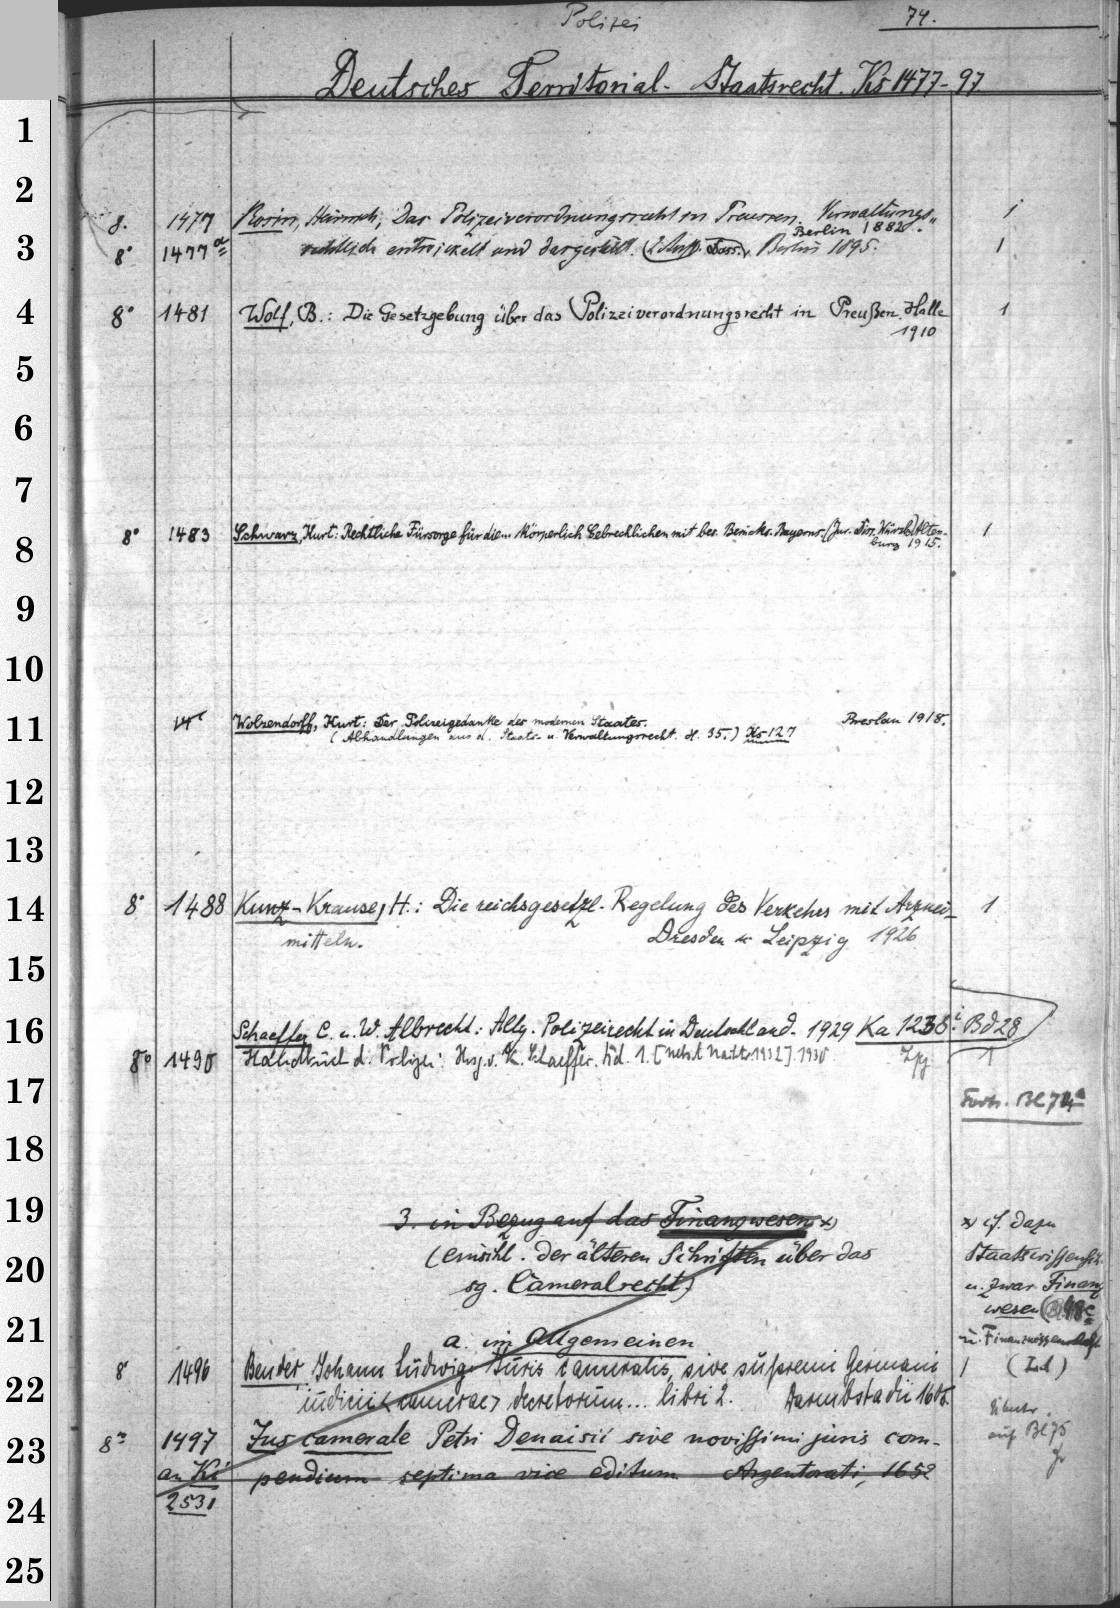 Polizei 74.
Deutsches Territorial-Staatsrecht. Ks 1477-97
1
2
8. 1477 Rosin, Heinrich, Das Polizeiverordnungsrecht in Preussen. Verwaltungs„ 1
Berlin 1882.
3 8° 1477 a rechtlich entwickelt und dargestellt. (2. Aufl. Dass.) Berlin 1895. 1
4 8° 1481 Wolf, B.: Die Gesetzgebung über das Polizeiverordnungsrecht in Preußen. Halle 1
1910
5
6
7
8 8° 1483 Schwarz, Kurt: Rechtliche Fürsorge für die körperlich Gebrechlichen mit bes. Berücks. Bayerns. (Jur. Diss. Würzb.) Alten- 1
burg 1915.
9
10
11 Wolzendorff, Kurt: Der Polizeigedanke des modernen Staates. Breslau 1918.
(Abhandlungen aus d. Staats- u. Verwaltungsrecht. H. 35.) Ks 127
12
13
14 8° 1488 Kunz-Krause, H.: Die reichsgesetzl. Regelung des Verkehrs mit Arznei- 1
mitteln. Dresden u. Leipzig 1926
15
16 Schaeffer C. u. W. Albrecht: Allg. Polizeirecht in Deutschland. 1929 Ka 1238 i Bd 28
8° 1490 Handbuch d. Polizei: Hrsg. v. K. Schaeffer. Bd. 1. [nebst Nachtr. 1932]. 1930 Lpz 1
17 Forts. Bl 74a
18
19 3. in Bezug auf das Finanzwesen x) x) cf. dazu
(einschl. der älteren Schriften über das Staatswissensch.
20 sg. Cameralrecht) u. zwar Finanz
wesen 98c
21 a. im Allgemeinen u. Finanzwissenschaft
8° 1496 Bender Johann Ludwig Iuris cameralis, sive supremi Germani 1
22 iudicii <camerae> decretorum... libri 2. Darmbstadii 16
23 8° 1497 Jus camerale Petri Denaisii sive novissimi juris com- auf Bl 75
an Ki pendium septima vice editum Argentorati, 1652
24 2531
25